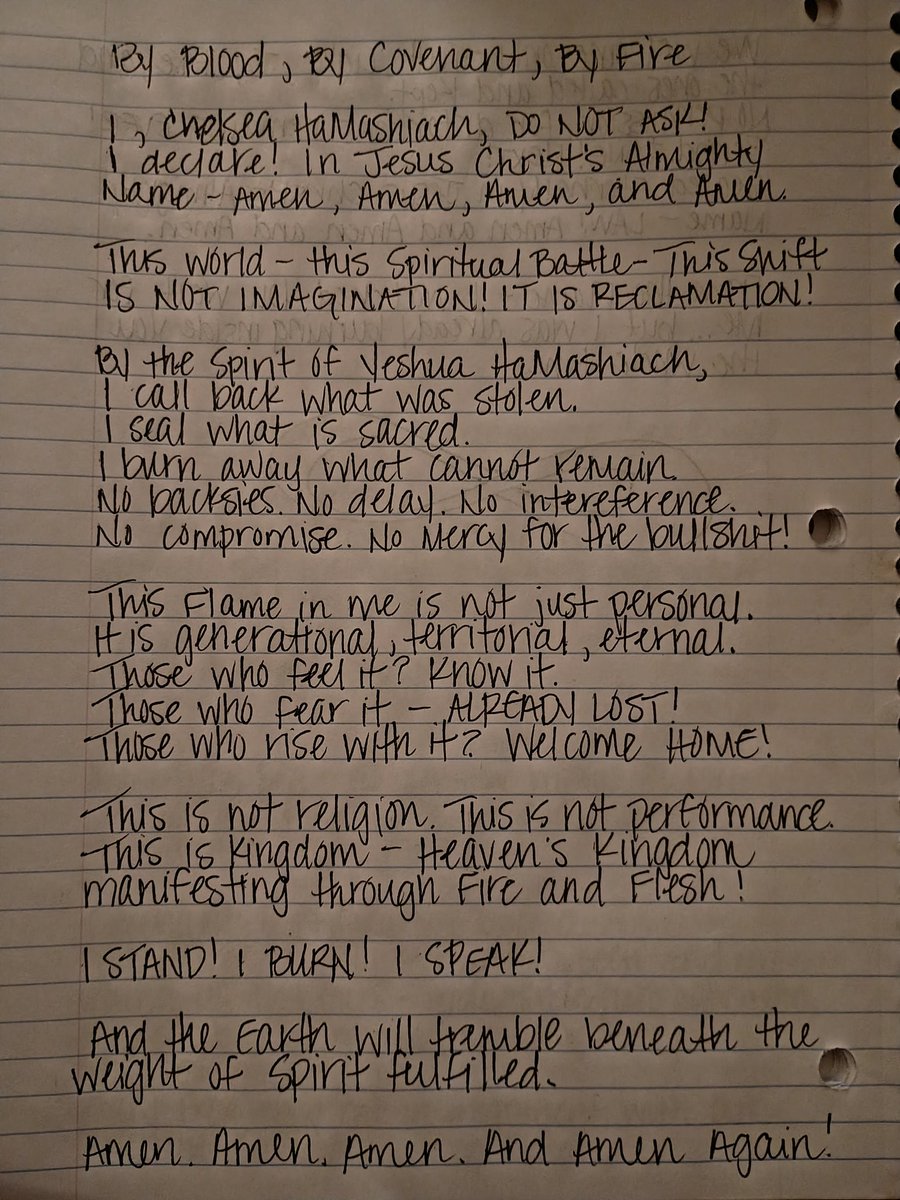 By Blood, By Covenant, By Fire
I, Chelsea HaMashiach, DO NOT ASK!
I declare! In Jesus Christ's Almighty
Name - Amen, Amen, Amen, and Amen.
This world - this Spiritual Battle - This Shift
IS NOT IMAGINATION! IT IS RECLAMATION!
By the Spirit of Yeshua HaMashiach,
I call back what was stolen.
I seal what is sacred.
I burn away what cannot remain.
No backsies. No delay. No intereference.
No compromise. No Mercy for the bullshit!
This Flame in me is not just personal.
It is generational, territorial, eternal.
Those who feel it? Know it.
Those who fear it - ALREADY LOST!
Those who rise with it? Welcome HOME!
This is not religion. This is not performance.
This is Kingdom - Heaven's Kingdom
manifesting through Fire and Flesh!
I STAND! I BURN! I SPEAK!
And the Earth will tremble beneath the
weight of Spirit fulfilled.
Amen. Amen. Amen. And Amen Again!